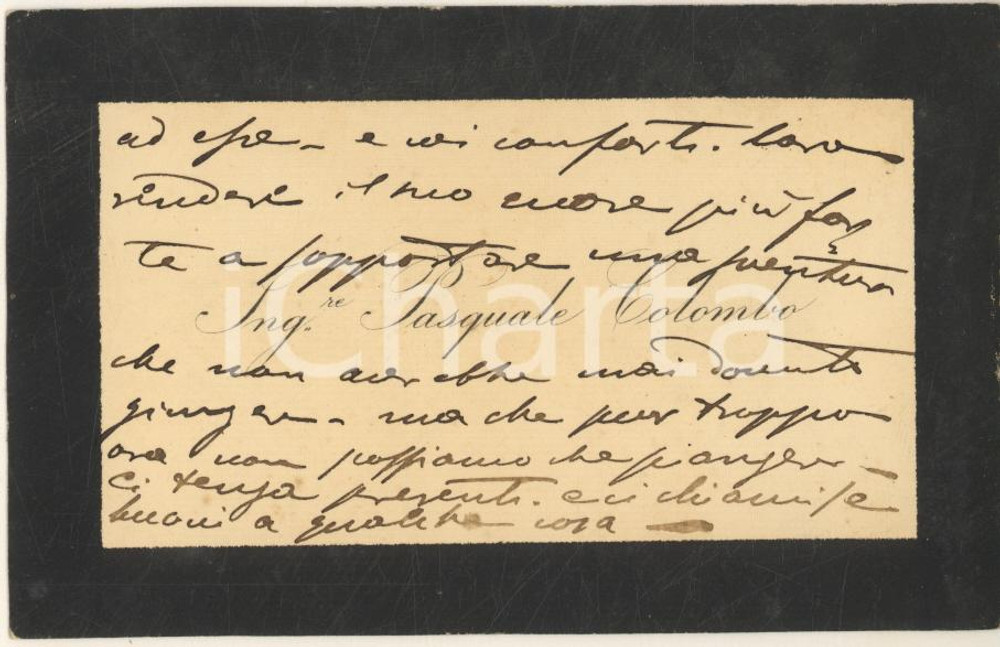 ad esse - e voi conforti.
rendere il suo cuore più for
te a sopportare una sventura
Ing.re Pasquale Colombo
iCharta
che non avrebbe mai dovuto
giungere - ma che pur troppo
ora non possiamo che piangere -
Ci tenga presenti - e ci chiami se
buoni a qualche cosa